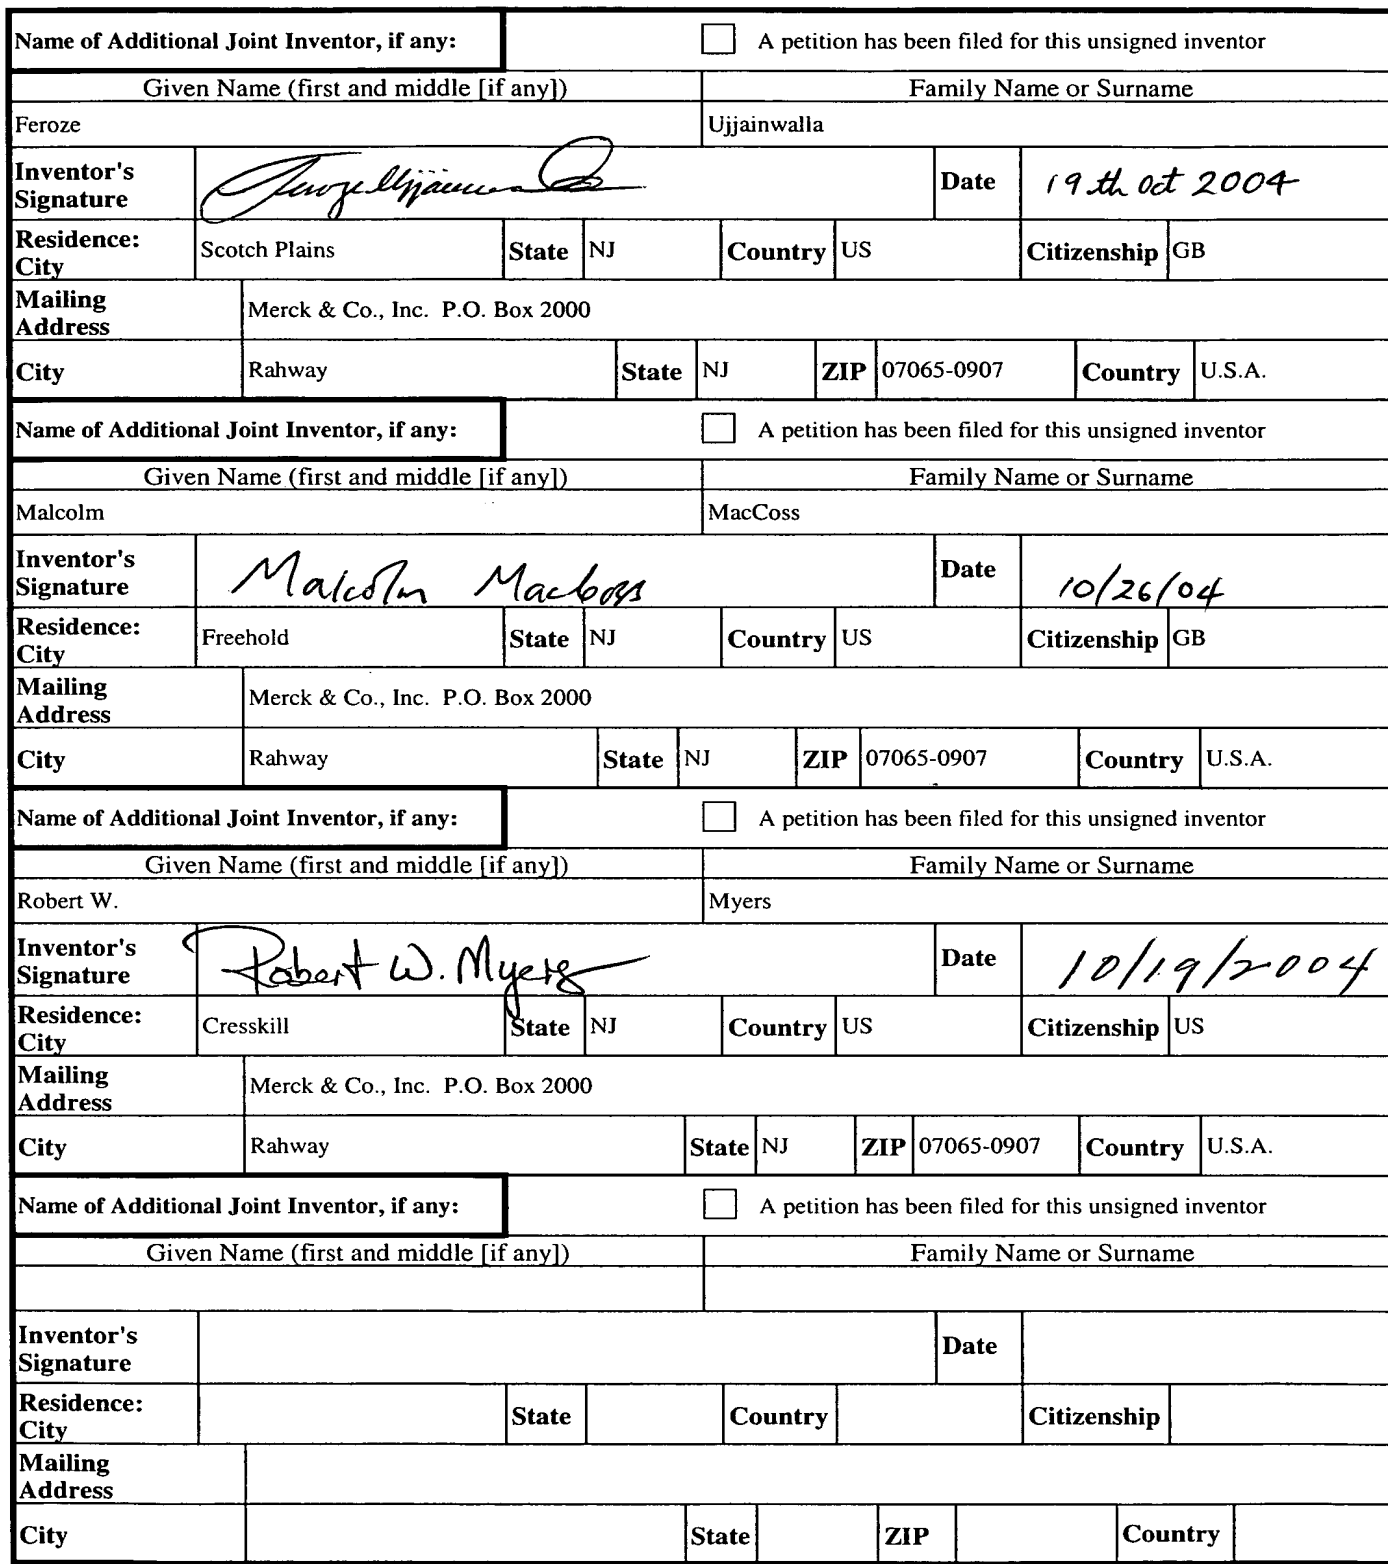 Name of Additional Joint Inventor, if any: A petition has been filed for this unsigned inventor
Given Name (first and middle [if any]) Family Name or Surname
Feroze Ujjainwalla
Inventor's Signature Feroze Ujjainwalla Date 19th Oct 2004
Residence: City Scotch Plains State NJ Country US Citizenship GB
Mailing Address Merck & Co., Inc. P.O. Box 2000
City Rahway State NJ ZIP 07065-0907 Country U.S.A.
Name of Additional Joint Inventor, if any: A petition has been filed for this unsigned inventor
Given Name (first and middle [if any]) Family Name or Surname
Malcolm MacCoss
Inventor's Signature Malcolm MacCoss Date 10/26/04
Residence: City Freehold State NJ Country US Citizenship GB
Mailing Address Merck & Co., Inc. P.O. Box 2000
City Rahway State NJ ZIP 07065-0907 Country U.S.A.
Name of Additional Joint Inventor, if any: A petition has been filed for this unsigned inventor
Given Name (first and middle [if any]) Family Name or Surname
Robert W. Myers
Inventor's Signature Robert W. Myers Date 10/19/2004
Residence: City Cresskill State NJ Country US Citizenship US
Mailing Address Merck & Co., Inc. P.O. Box 2000
City Rahway State NJ ZIP 07065-0907 Country U.S.A.
Name of Additional Joint Inventor, if any: A petition has been filed for this unsigned inventor
Given Name (first and middle [if any]) Family Name or Surname
Inventor's Signature Date
Residence: City State Country Citizenship
Mailing Address
City State ZIP Country